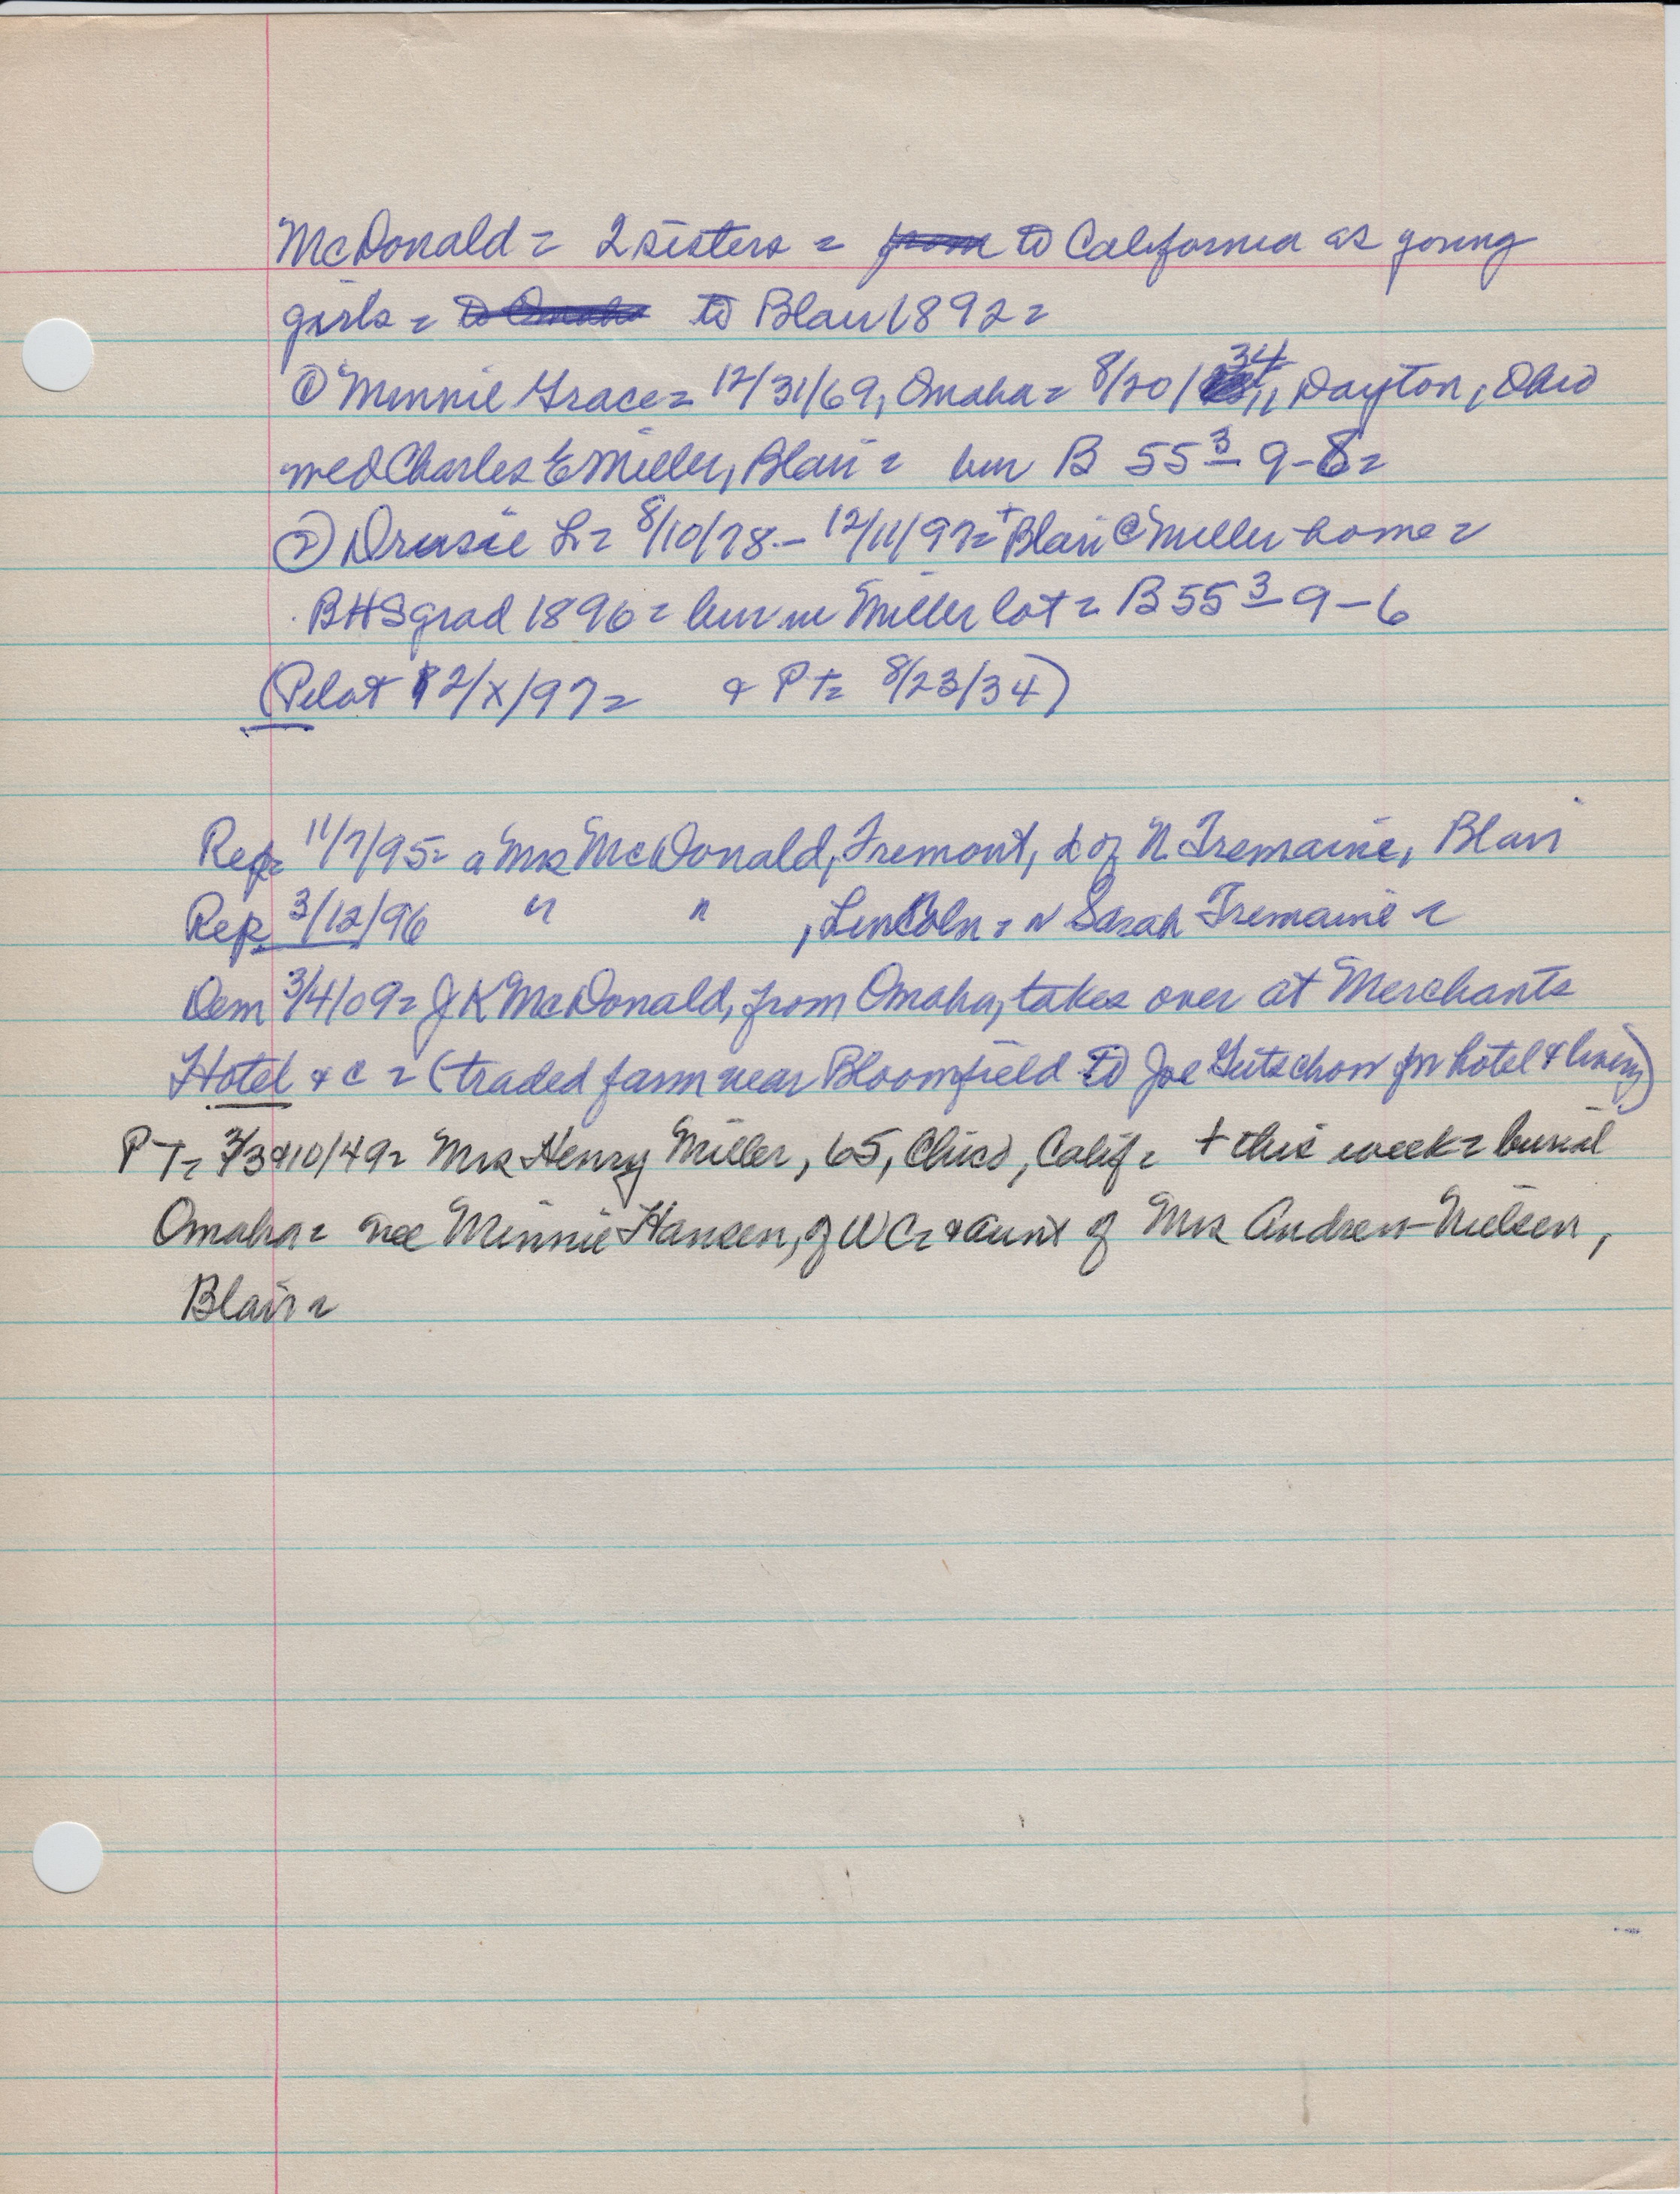 McDonald = 2 sisters = from to California as young
girls = to Omaha to Blair 1892 =
① Minnie Grace = 12/31/69, Omaha = 8/20/34, Dayton, Ohio
med Charles E Miller, Blair = bur B 55 3 9-8 =
② Drusie L = 8/10/78 - 12/11/97 = + Blair @ Miller home =
BHS grad 1896 = bur in Miller lot = B 55 3 9-6
(Pilot 12/x/97 = & PT = 8/23/34)
Rep = 11/7/95 = a Mrs McDonald, Fremont, d of N Tremaine, Blair
Rep 3/12/96 " " , Lincoln = v Sarah Tremaine =
Dem 3/4/09 = J K McDonald, from Omaha, takes over at Merchants
Hotel & c = (traded farm near Bloomfield to Joe Gutschow for hotel & livery)
PT = 3/3&10/49 = Mrs Henry Miller, 65, Chico, Calif = + this week = burial
Omaha = nee Minnie Hansen, of WC = & aunt of Mrs Andrew Nielsen,
Blair =